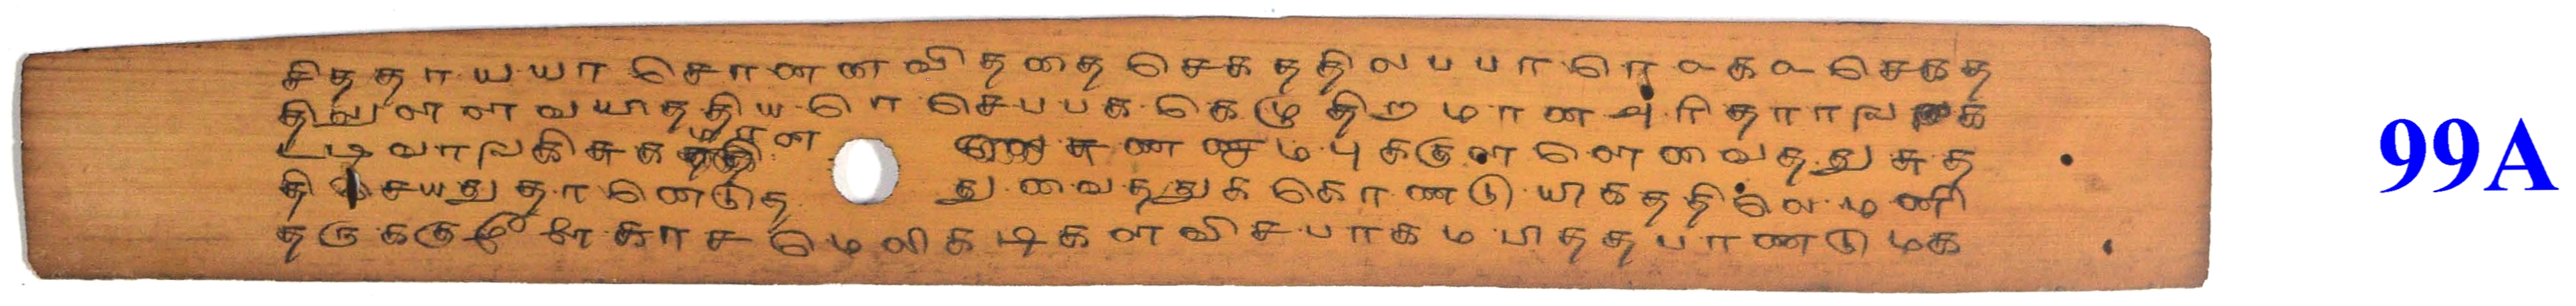 சிததாயயா சொனனவிததை செகததிலபபாரெ உகஉ செகத
திலுளளவயாததியரெ செபபககெழு திறமானஅரிதாரலக
டடிவாலகிசுக மான சுணணமபுககுளளெ வைதது சுத
தி செயது தானெடுதது வைததுககொணடு யிகததிலெ மணி
தருககு காசமெலிகடிகளவிசபாகமபிததபாணடுமக
99A